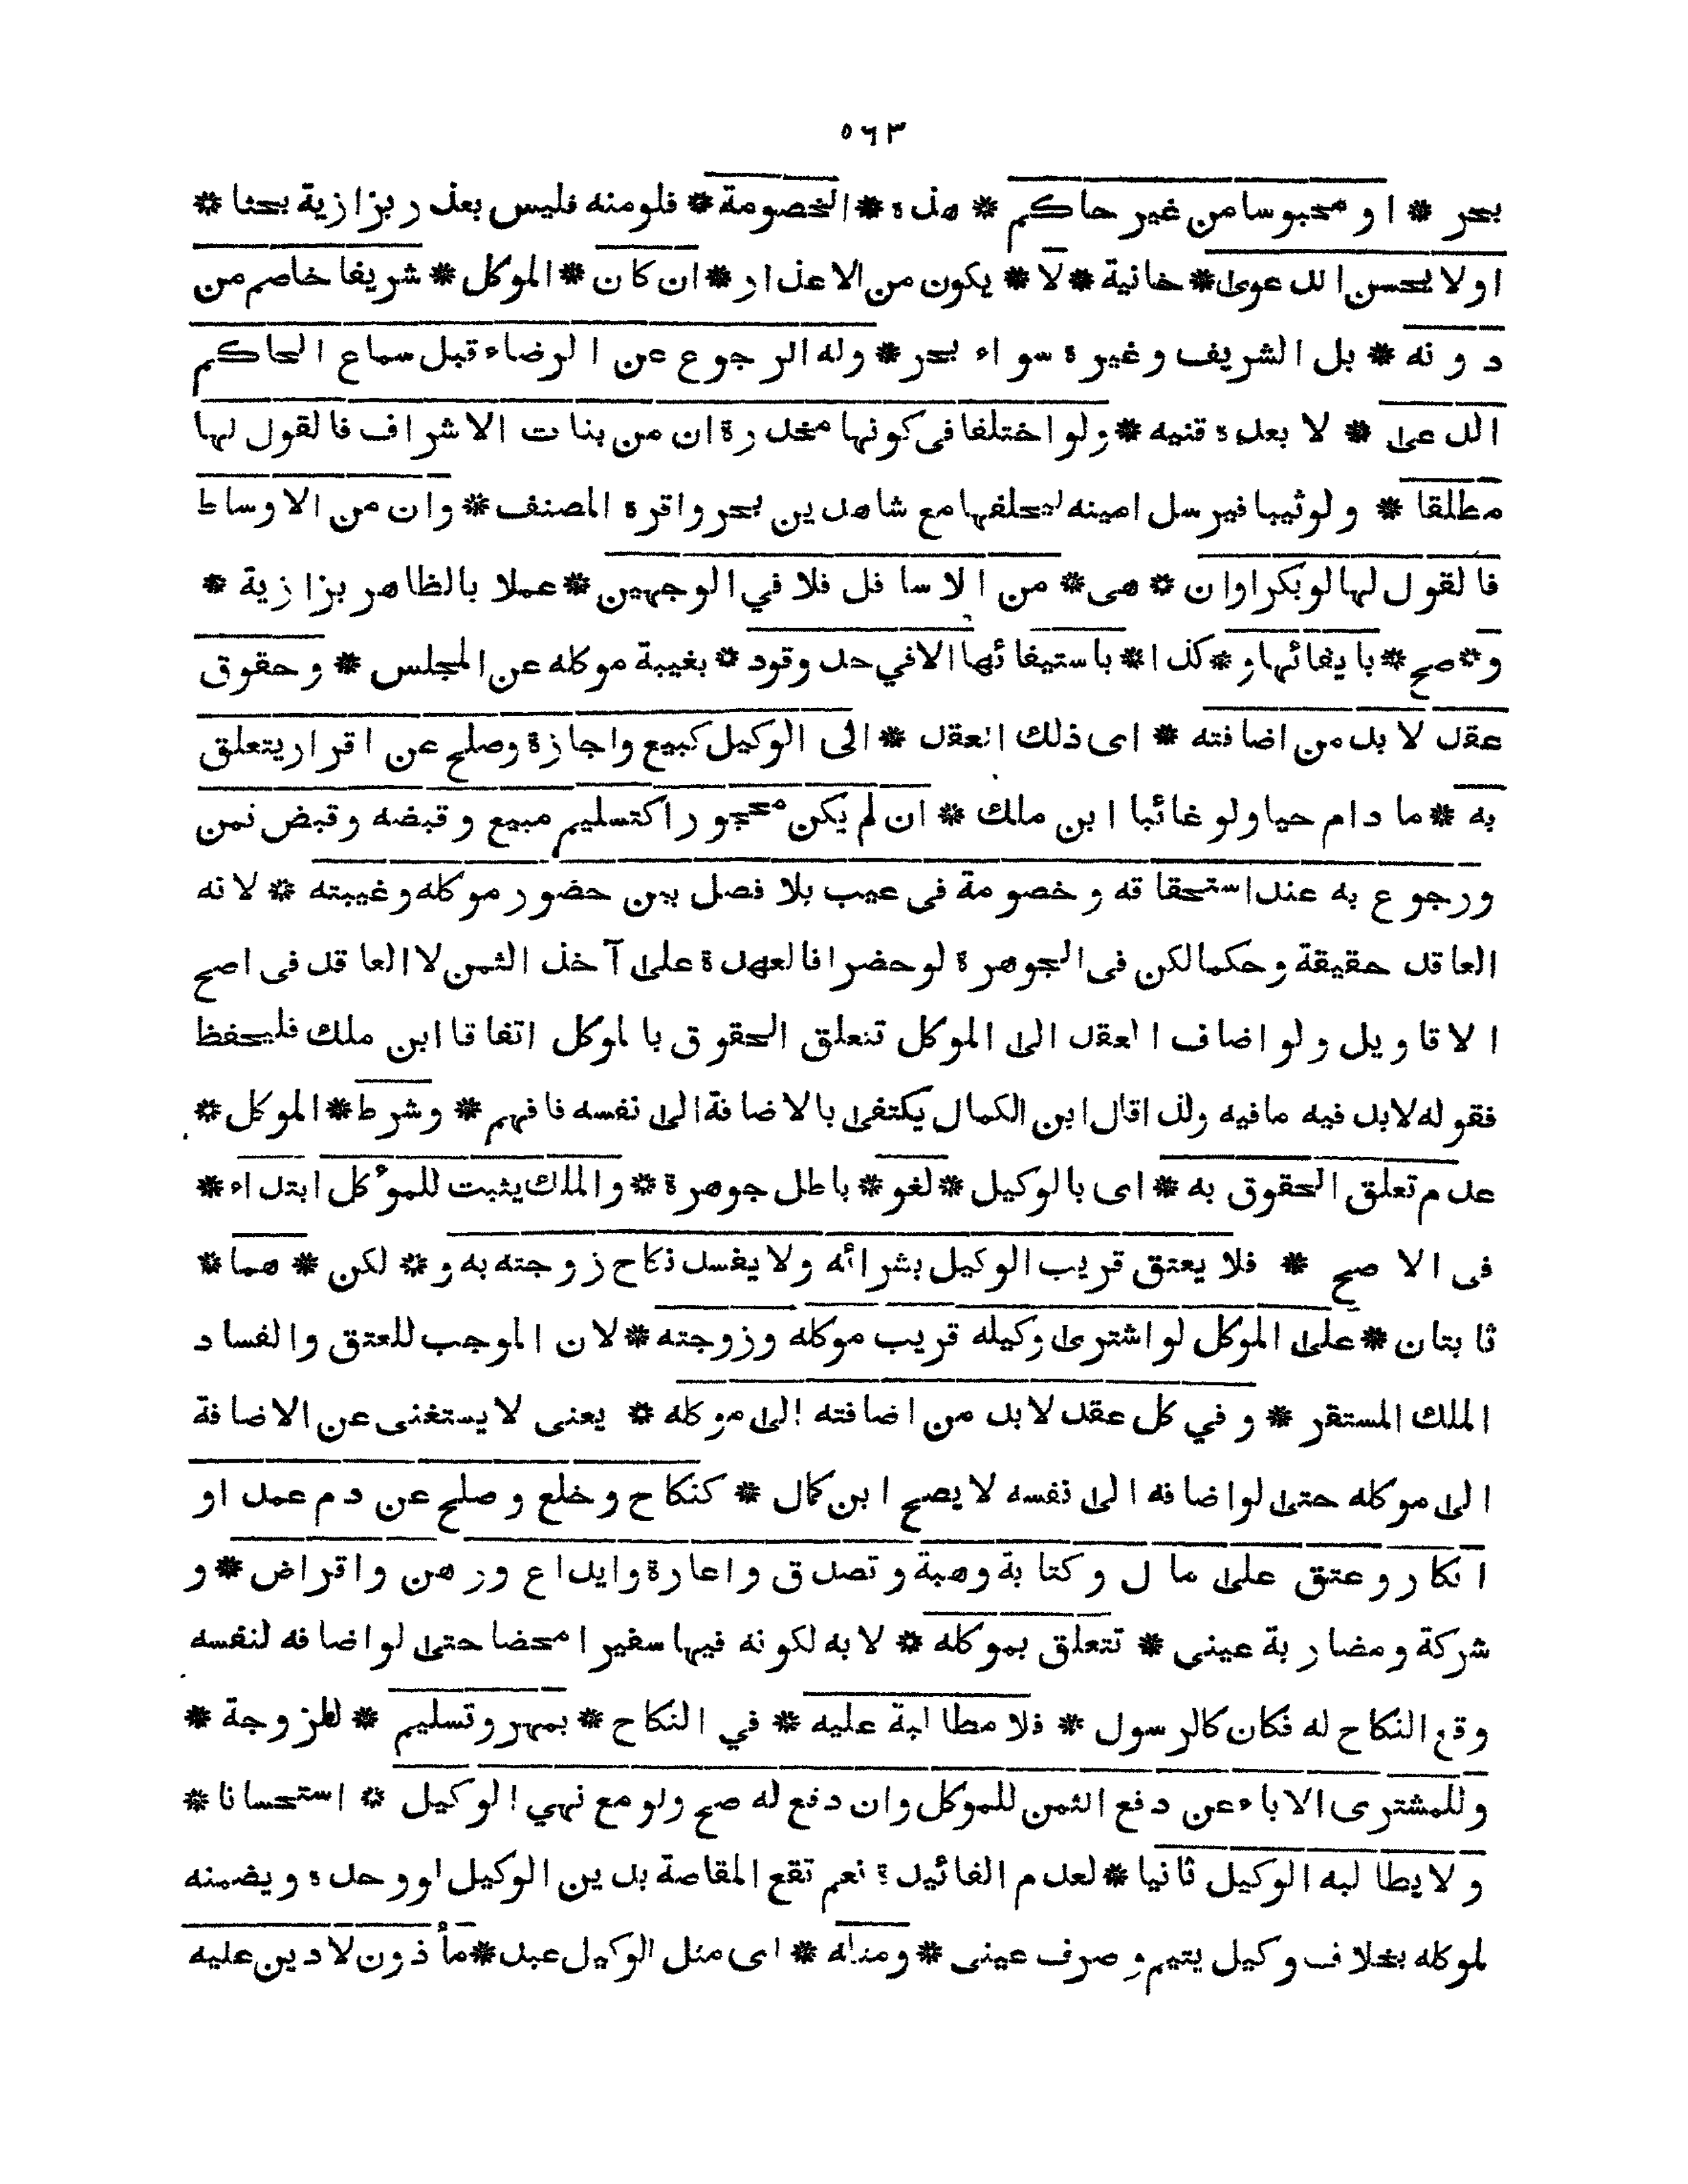 ٥٦٣
بحر * او محبوسا من غير حاكم * هذه * الخصومة * فلو منه فليس بعذر بزازية بحثا *
او لا يحسن الدعوى * خانية * لا * يكون من الاعذار * ان كان * الموكل * شريفا خاصم من
دونه * بل الشريف وغيره سواء بحر * وله الرجوع عن الرضاء قبل سماع الحاكم
الدعى * لا بعده قنيه * ولو اختلفا فى كونها مخدرة ان من بنات الاشراف فالقول لها
مطلقا * ولو ثيبا فيرسل امينه ليحلفها مع شاهدين بحر واقره المصنف * وان من الاوساط
فالقول لها لو بكرا وان * هى * من الاسافل فلا في الوجهين * عملا بالظاهر بزازية *
و * صح * بايفائها و * كذا * باستيفائها الا في حد وقود * بغيبة موكله عن المجلس * وحقوق
عقد لا بد من اضافته * اى ذلك العقد * الى الوكيل كبيع واجازة وصلح عن اقرار يتعلق
به * ما دام حيا ولو غائبا ابن ملك * ان لم يكن محجورا كتسليم مبيع وقبضه وقبض ثمن
ورجوع به عند استحقاقه وخصومة فى عيب بلا فصل بين حضور موكله وغيبته * لانه
العاقد حقيقة وحكما لكن فى الجوهرة لو حضرا فالعهدة على آخذ الثمن لا العاقد فى اصح
الاقاويل ولو اضاف العقد الى الموكل تتعلق الحقوق بالموكل اتفاقا ابن ملك فليحفظ
فقوله لا بد فيه ما فيه ولذا قال ابن الكمال يكتفى بالاضافة الى نفسه فافهم * وشرط * الموكل *
عدم تعلق الحقوق به * اى بالوكيل * لغو * باطل جوهرة * والملك يثبت للموكل ابتداء *
فى الاصح * فلا يعتق قريب الوكيل بشرائه ولا يفسد نكاح زوجته به و * لكن * هما *
ثابتان * على الموكل لو اشترى وكيله قريب موكله وزوجته * لان الموجب للعتق والفساد
الملك المستقر * وفي كل عقد لا بد من اضافته الى موكله * يعنى لا يستغنى عن الاضافة
الى موكله حتى لو اضافه الى نفسه لا يصح ابن كمال * كنكاح وخلع وصلح عن دم عمد او
انكار وعتق على مال وكتابة وهبة وتصدق واعارة وايداع ورهن واقراض * و
شركة ومضاربة عينى * تتعلق بموكله * لا به لكونه فيها سفيرا محضا حتى لو اضافه لنفسه
وقع النكاح له فكان كالرسول * فلا مطالبة عليه * في النكاح * بمهر وتسليم * للزوجة *
وللمشترى الاباء عن دفع الثمن للموكل وان دفع له صح ولو مع نهي الوكيل * استحسانا *
ولا يطالبه الوكيل ثانيا * لعدم الفائيدة نعم تقع المقاصة بدين الوكيل لو وحده ويضمنه
لموكله بخلاف وكيل يتيم وصرف عينى * ومثله * اى مثل الوكيل عبد * مأذون لا دين عليه